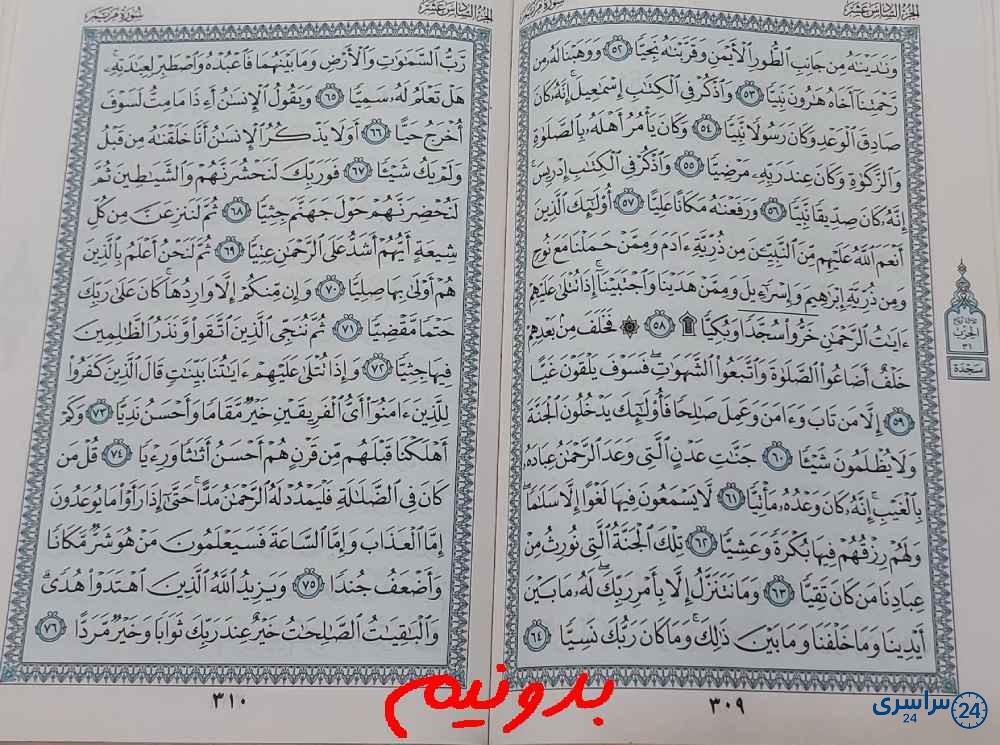 الجزء السادس عشر
سورة مريم
وَنَٰدَيْنَٰهُ مِن جَانِبِ ٱلطُّورِ ٱلْأَيْمَنِ وَقَرَّبْنَٰهُ نَجِيًّا ٥٢ وَوَهَبْنَا لَهُۥ مِن
رَّحْمَتِنَآ أَخَاهُ هَٰرُونَ نَبِيًّا ٥٣ وَٱذْكُرْ فِى ٱلْكِتَٰبِ إِسْمَٰعِيلَ ۚ إِنَّهُۥ كَانَ
صَادِقَ ٱلْوَعْدِ وَكَانَ رَسُولًا نَّبِيًّا ٥٤ وَكَانَ يَأْمُرُ أَهْلَهُۥ بِٱلصَّلَوٰةِ
وَٱلزَّكَوٰةِ وَكَانَ عِندَ رَبِّهِۦ مَرْضِيًّا ٥٥ وَٱذْكُرْ فِى ٱلْكِتَٰبِ إِدْرِيسَ ۚ
إِنَّهُۥ كَانَ صِدِّيقًا نَّبِيًّا ٥٦ وَرَفَعْنَٰهُ مَكَانًا عَلِيًّا ٥٧ أُو۟لَٰٓئِكَ ٱلَّذِينَ
أَنْعَمَ ٱللَّهُ عَلَيْهِم مِّنَ ٱلنَّبِيِّـۧنَ مِن ذُرِّيَّةِ ءَادَمَ وَمِمَّنْ حَمَلْنَا مَعَ نُوحٍ
وَمِن ذُرِّيَّةِ إِبْرَٰهِيمَ وَإِسْرَٰٓءِيلَ وَمِمَّنْ هَدَيْنَا وَٱجْتَبَيْنَآ ۚ إِذَا تُتْلَىٰ عَلَيْهِمْ
ءَايَٰتُ ٱلرَّحْمَٰنِ خَرُّوا۟ سُجَّدًا وَبُكِيًّا ۩ ٥٨ ۞ فَخَلَفَ مِنۢ بَعْدِهِمْ
خَلْفٌ أَضَاعُوا۟ ٱلصَّلَوٰةَ وَٱتَّبَعُوا۟ ٱلشَّهَوَٰتِ ۖ فَسَوْفَ يَلْقَوْنَ غَيًّا
٥٩ إِلَّا مَن تَابَ وَءَامَنَ وَعَمِلَ صَٰلِحًا فَأُو۟لَٰٓئِكَ يَدْخُلُونَ ٱلْجَنَّةَ
وَلَا يُظْلَمُونَ شَيْـًٔا ٦٠ جَنَّٰتِ عَدْنٍ ٱلَّتِى وَعَدَ ٱلرَّحْمَٰنُ عِبَادَهُۥ
بِٱلْغَيْبِ ۚ إِنَّهُۥ كَانَ وَعْدُهُۥ مَأْتِيًّا ٦١ لَّا يَسْمَعُونَ فِيهَا لَغْوًا إِلَّا سَلَٰمًا ۖ
وَلَهُمْ رِزْقُهُمْ فِيهَا بُكْرَةً وَعَشِيًّا ٦٢ تِلْكَ ٱلْجَنَّةُ ٱلَّتِى نُورِثُ مِنْ
عِبَادِنَا مَن كَانَ تَقِيًّا ٦٣ وَمَا نَتَنَزَّلُ إِلَّا بِأَمْرِ رَبِّكَ ۖ لَهُۥ مَا بَيْنَ
أَيْدِينَا وَمَا خَلْفَنَا وَمَا بَيْنَ ذَٰلِكَ ۚ وَمَا كَانَ رَبُّكَ نَسِيًّا ٦٤
الحزب
٣١
سجدة
٣٠٩
الجزء السادس عشر
سورة مريم
رَّبُّ ٱلسَّمَٰوَٰتِ وَٱلْأَرْضِ وَمَا بَيْنَهُمَا فَٱعْبُدْهُ وَٱصْطَبِرْ لِعِبَٰدَتِهِۦ ۚ
هَلْ تَعْلَمُ لَهُۥ سَمِيًّا ٦٥ وَيَقُولُ ٱلْإِنسَٰنُ أَءِذَا مَا مِتُّ لَسَوْفَ
أُخْرَجُ حَيًّا ٦٦ أَوَلَا يَذْكُرُ ٱلْإِنسَٰنُ أَنَّا خَلَقْنَٰهُ مِن قَبْلُ
وَلَمْ يَكُ شَيْـًٔا ٦٧ فَوَرَبِّكَ لَنَحْشُرَنَّهُمْ وَٱلشَّيَٰطِينَ ثُمَّ
لَنُحْضِرَنَّهُمْ حَوْلَ جَهَنَّمَ جِثِيًّا ٦٨ ثُمَّ لَنَنزِعَنَّ مِن كُلِّ
شِيعَةٍ أَيُّهُمْ أَشَدُّ عَلَى ٱلرَّحْمَٰنِ عِتِيًّا ٦٩ ثُمَّ لَنَحْنُ أَعْلَمُ بِٱلَّذِينَ
هُمْ أَوْلَىٰ بِهَا صِلِيًّا ٧٠ وَإِن مِّنكُمْ إِلَّا وَارِدُهَا ۚ كَانَ عَلَىٰ رَبِّكَ
حَتْمًا مَّقْضِيًّا ٧١ ثُمَّ نُنَجِّى ٱلَّذِينَ ٱتَّقَوا۟ وَّنَذَرُ ٱلظَّٰلِمِينَ
فِيهَا جِثِيًّا ٧٢ وَإِذَا تُتْلَىٰ عَلَيْهِمْ ءَايَٰتُنَا بَيِّنَٰتٍ قَالَ ٱلَّذِينَ كَفَرُوا۟
لِلَّذِينَ ءَامَنُوٓا۟ أَىُّ ٱلْفَرِيقَيْنِ خَيْرٌ مَّقَامًا وَأَحْسَنُ نَدِيًّا ٧٣ وَكَمْ
أَهْلَكْنَا قَبْلَهُم مِّن قَرْنٍ هُمْ أَحْسَنُ أَثَٰثًا وَرِءْيًا ٧٤ قُلْ مَن
كَانَ فِى ٱلضَّلَٰلَةِ فَلْيَمْدُدْ لَهُ ٱلرَّحْمَٰنُ مَدًّا ۚ حَتَّىٰٓ إِذَا رَأَوْا۟ مَا يُوعَدُونَ
إِمَّا ٱلْعَذَابَ وَإِمَّا ٱلسَّاعَةَ فَسَيَعْلَمُونَ مَنْ هُوَ شَرٌّ مَّكَانًا
وَأَضْعَفُ جُندًا ٧٥ وَيَزِيدُ ٱللَّهُ ٱلَّذِينَ ٱهْتَدَوْا۟ هُدًى ۗ
وَٱلْبَٰقِيَٰتُ ٱلصَّٰلِحَٰتُ خَيْرٌ عِندَ رَبِّكَ ثَوَابًا وَخَيْرٌ مَّرَدًّا ٧٦
٣١٠
بدونیم
سراسری 24
24